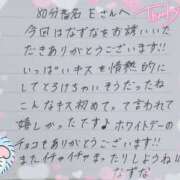 80分指名 Eさんへ
Thank
今回はなずなをお誘いいた
だきありがとうございます!!
いっぱいキスを情熱的に
してとろけちゃいそうだったね
こんなキス初めてって言われて
嬉しかったです♪ホワイトデーの
チョコもありがとうございます!
またイチャイチャまったりしようね
なずな